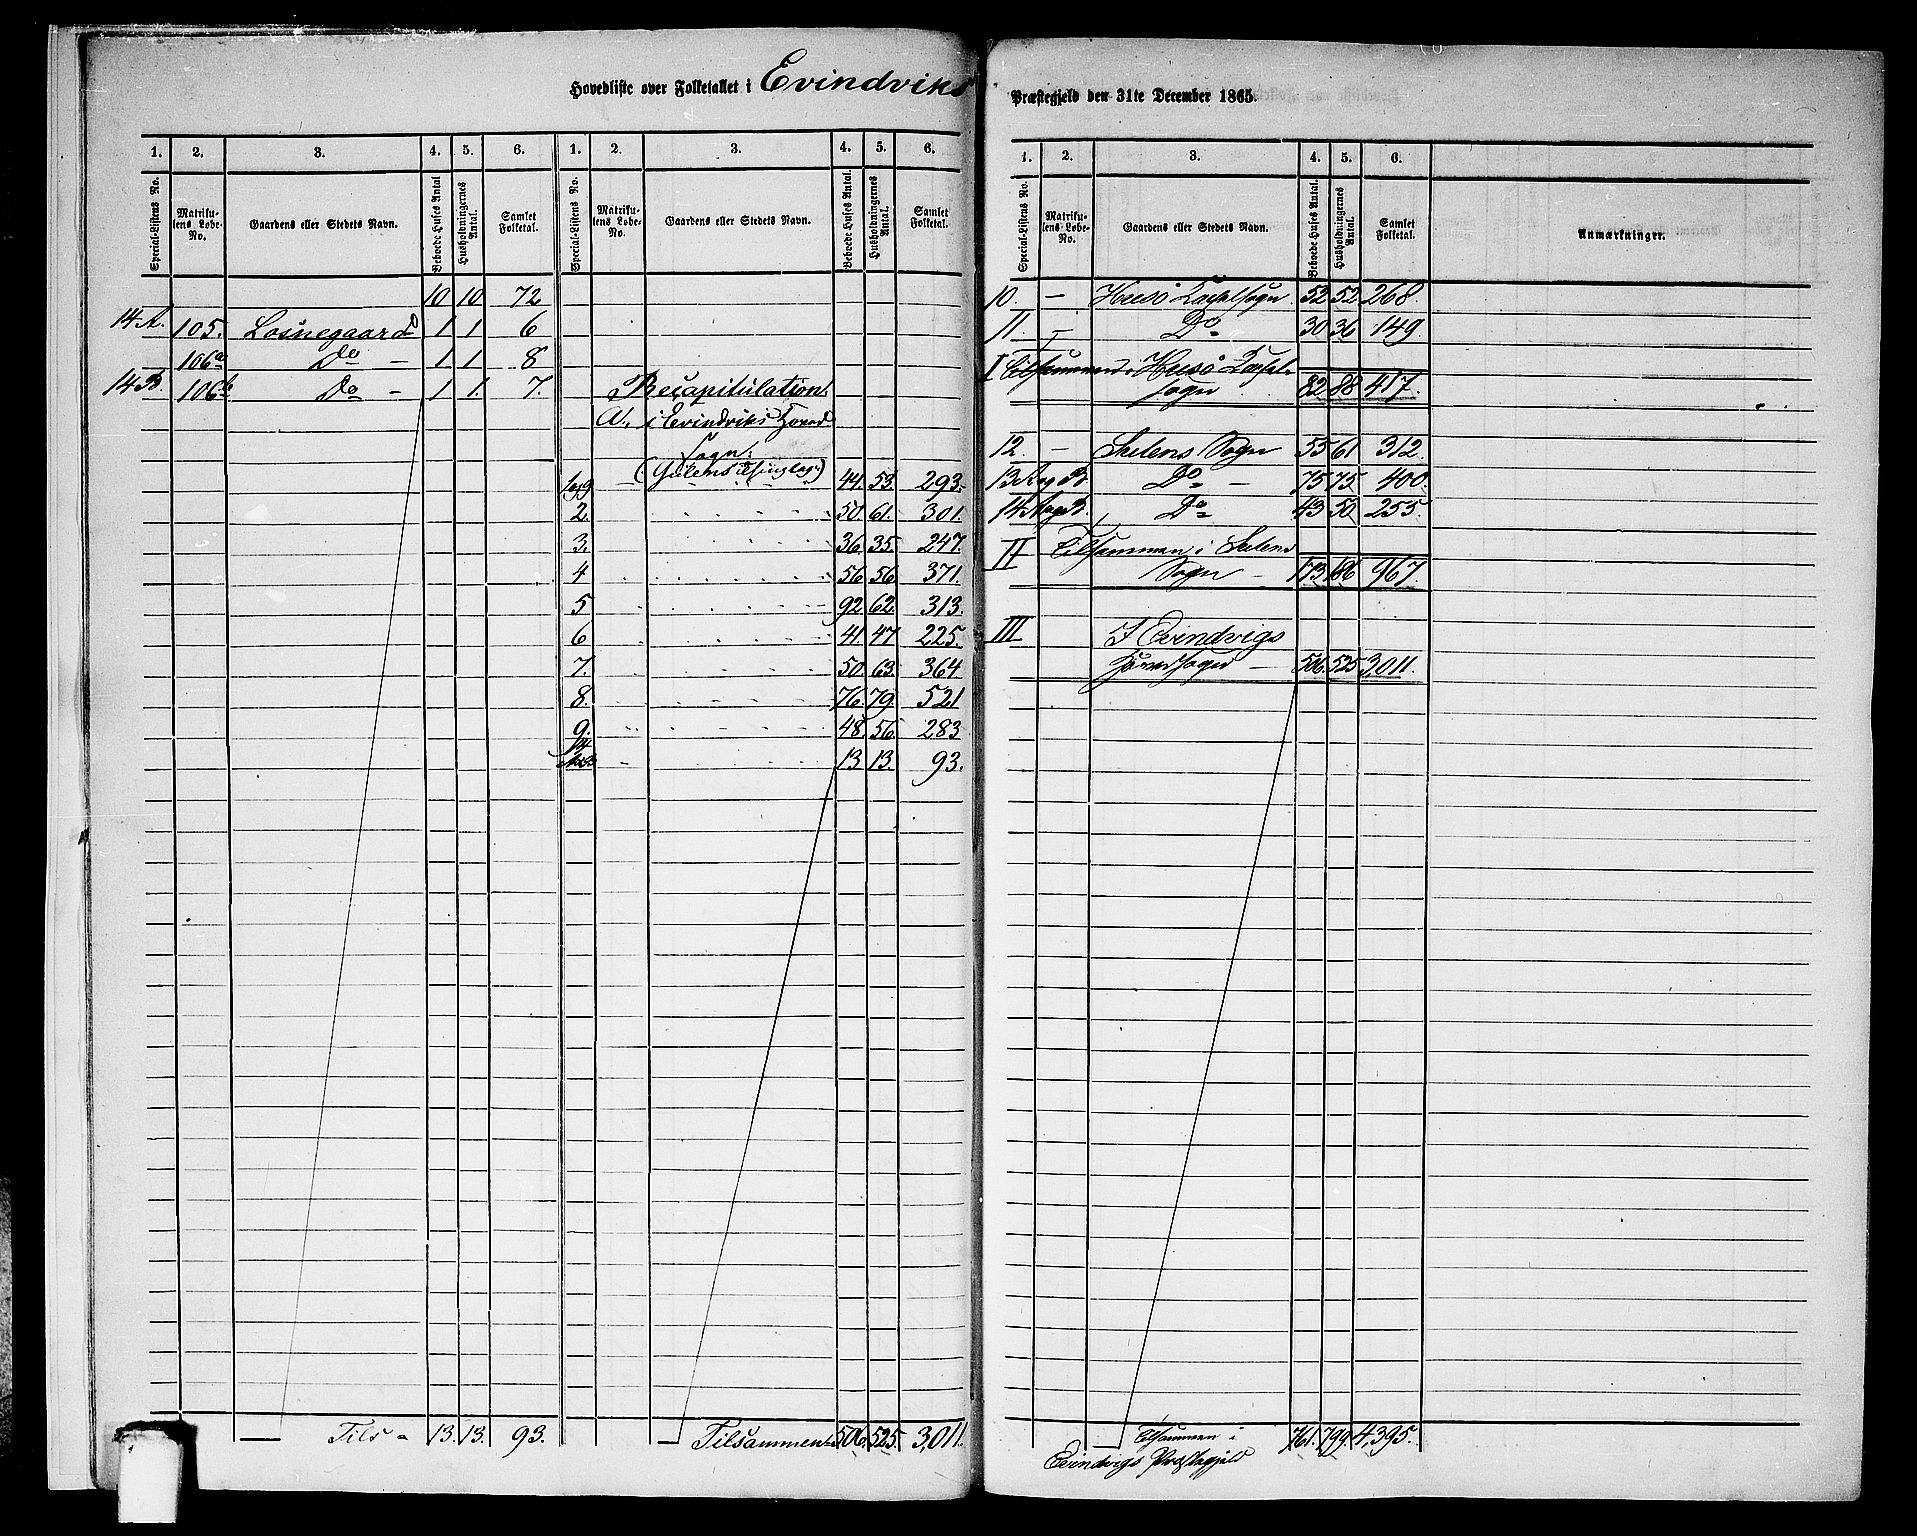 Hovedliste over Folketallet i Evindviks
1. 2. 3. 4. 5. 6. 1. 2. 3. 4. 5. 6.
Special-Listens No. Matrikulens Løbe-No. Gaardens eller Stedets Navn. Beboede Huses Antal Husholdningernes Antal. Samlet Folketal. Special-Listens No. Matrikulens Løbe-No. Gaardens eller Stedets Navn. Beboede Huses Antal. Husholdningernes Antal. Samlet Folketal.
10 10 72
14 A. 105. Losnegaard 1 1 6
106a Do - 1 1 8
14 B. 106b Do - 1 1. 7.
Recapitulation.
A. i Evindviks Hoved
Sogn:
(Gulens Thinglag)
1 og 44. 53. 293.
2. 50. 61. 301.
3. 36. 35. 247.
4 56 56 371.
5 92 62. 313.
6 41. 47 225.
7. 50. 63. 364
8. 76. 79. 521
9. 48. 56. 283
14 A&B 13 13. 93.
Tils - 13. 13. 93.
Tilsammen 506. 525. 3,011.
Præstegjeld den 31te December 1865.
1. 2. 3. 4. 5. 6.
Special-Listens No. Matrikulens Løbe-No. Gaardens eller Stedets Navn. Beboede Huses Antal. Husholdningernes Antal. Samlet Folketal. Anmærkninger.
10. - Huusø Capelsogn 52 52 268.
11. - Do 30 36 149.
I Tilsammen i Huusø Capel-
sogn 82 88 417.
12. - Sulens Sogn 55 61 312.
13 A og B Do - 75 75 400.
14 A og B. Do 43 50 255.
II Tilsammen i Sulens
Sogn - 173 186 967.
III I Evindvigs
Hovedsogn - 506. 525 3,011.
Tilsammen i
Evindvigs Præstegjeld 761. 799. 4,395.